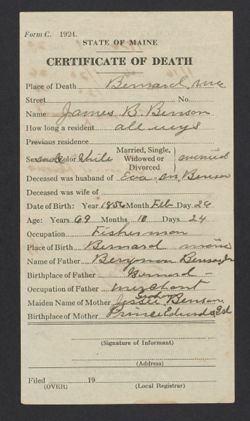 Form C. 1924.
STATE OF MAINE
CERTIFICATE OF DEATH
Place of Death Bernard, Me
Street No.
Name James B. Benson
How long a resident all ways
Previous residence
Sex male Color White Married, Single, Widowed or Divorced
Deceased was husband of Eva M. Benson
Deceased was wife of
Date of Birth: Year 1856 Month Feb Day 24
Age: Years 69 Months, 10 Days 24
Occupation Fisherman
Place of Birth Bernard Maine
Name of Father Benjman Benson
Birthplace of Father Bernard -
Occupation of Father merchant
Maiden Name of Mother Benson
Birthplace of Mother
(Signature of Informant)
(Address)
Filed 19
(OVER) (Local Registrar)